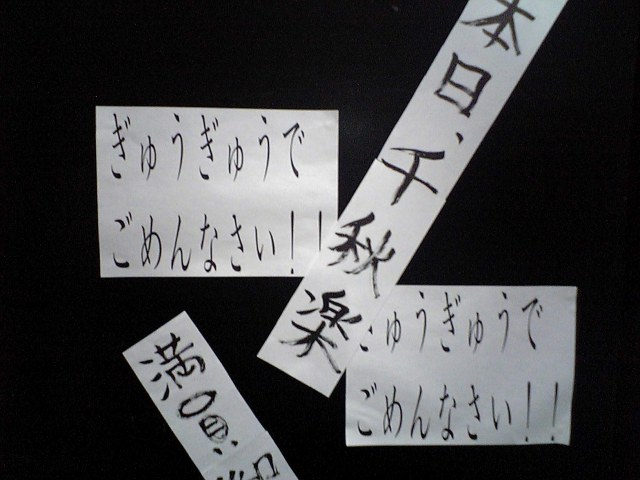 本日、千秋楽
ぎゅうぎゅうで
ごめんなさい！！
ぎゅうぎゅうで
ごめんなさい！！
満員